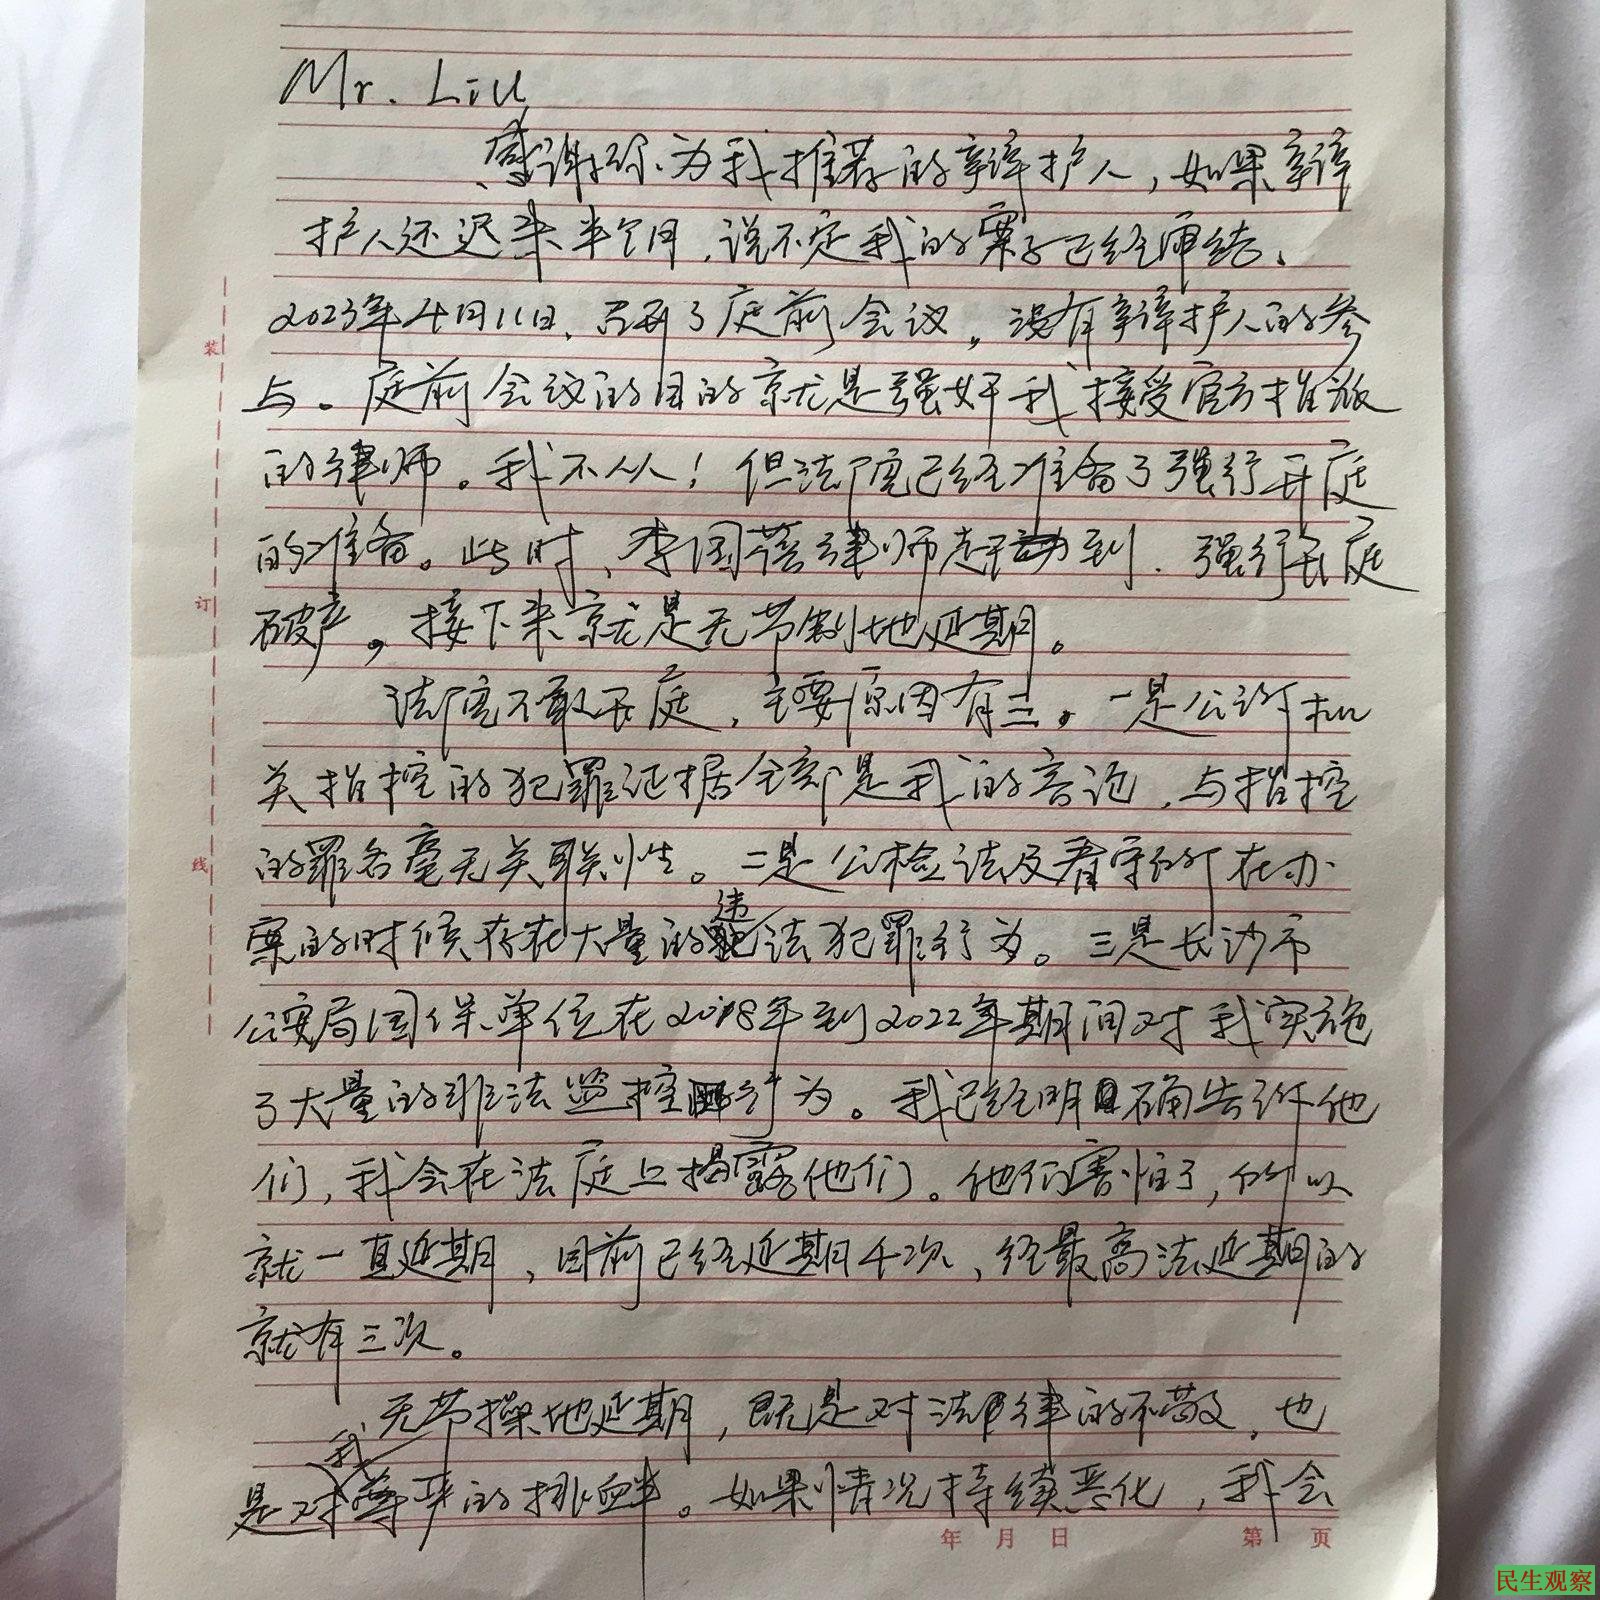 Mr. Liu
感谢你为我推荐的辩护人，如果辩
护人还迟来半个月，说不定我的案子已经审结。
2023年4月11日，召开了庭前会议，没有辩护人的参
与。庭前会议的目的就是强奸我接受官方指派
的律师。我不从！但法院已经准备了强行开庭
的准备。此时，李国蓓律师赶到，强行开庭
破产。接下来就是无节制地延期。
法院不敢开庭，主要原因有三。一是公诉机
关指控的犯罪证据全部是我的言论，与指控
的罪名毫无关联性。二是公检法及看守所在办
案的时候存在大量的违法犯罪行为。三是长沙市
公安局国保单位在2018年到2022年期间对我实施
了大量的非法监控行为。我已经明确告诉他
们，我会在法庭上揭露他们。他们害怕了，所以
就一直延期，目前已经延期4次，经最高法延期的
就有三次。
无节操地延期，既是对法律的不敬，也
是对我尊严的挑衅。如果情况持续恶化，我会
装
订
线
年 月 日 第 页
民生观察